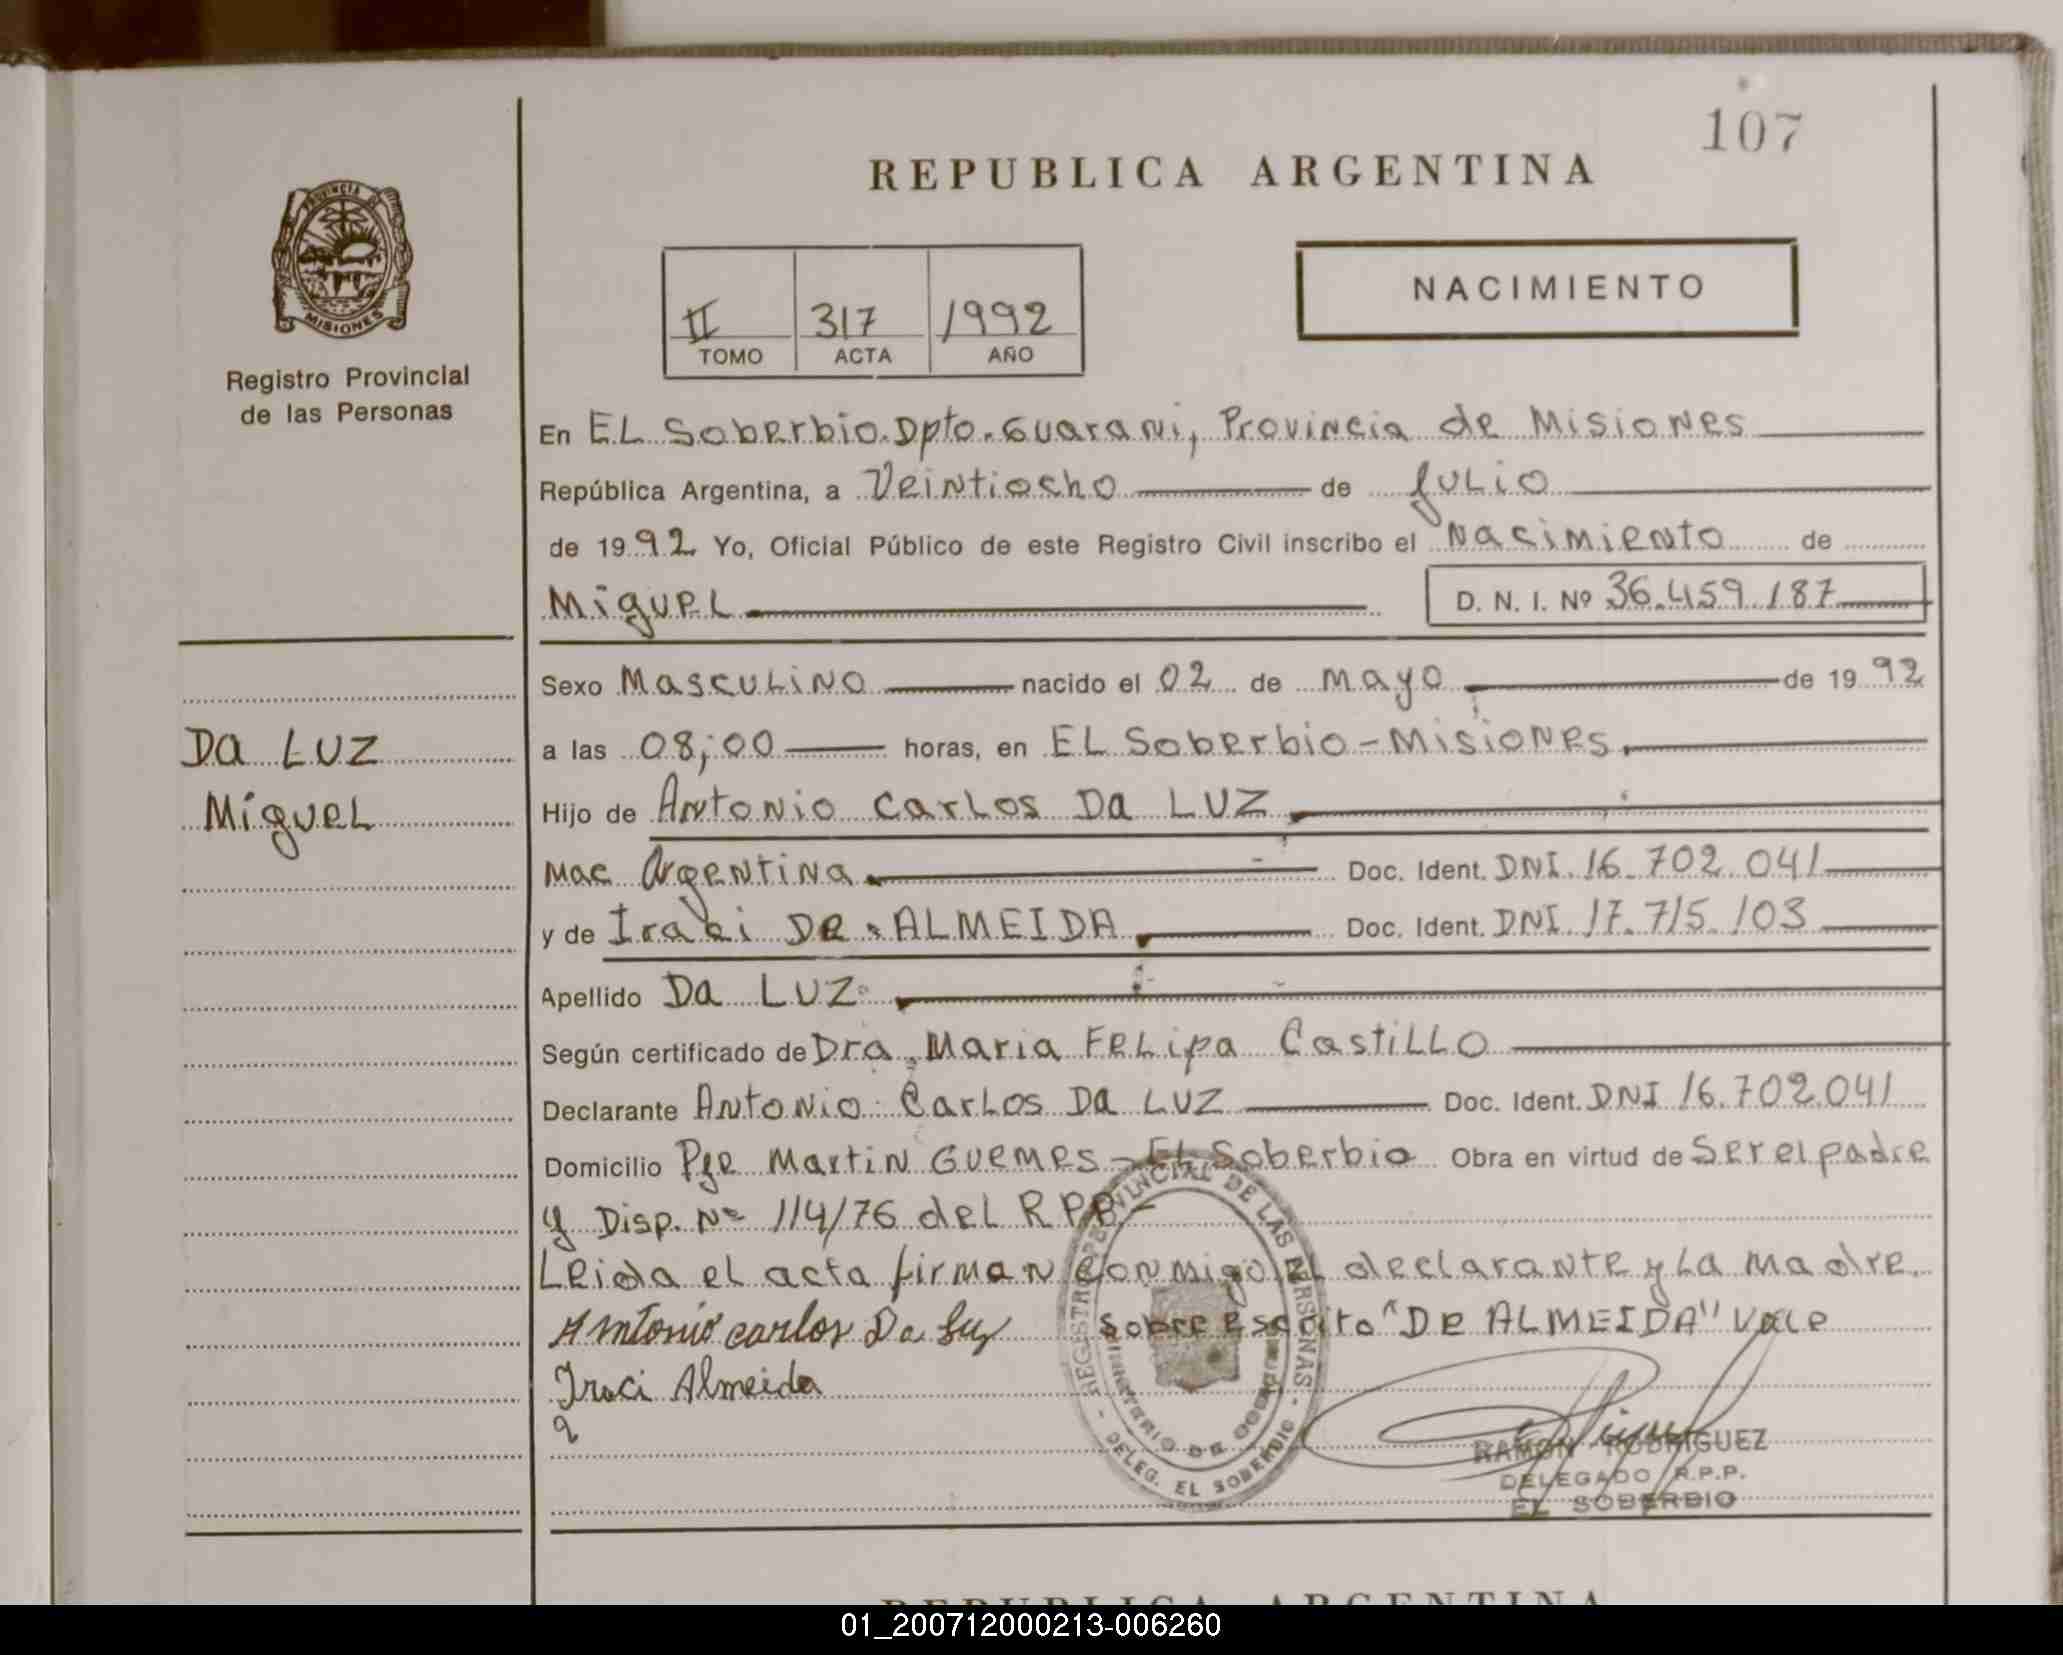 107
REPUBLICA ARGENTINA
PROVINCIA DE
MISIONES
Registro Provincial
de las Personas
NACIMIENTO
II 317 1992
TOMO ACTA AÑO
En EL Soberbio. Dpto. Guarani, Provincia de Misiones
República Argentina, a Veintiocho de julio
de 1992 Yo, Oficial Público de este Registro Civil inscribo el Nacimiento de
Miguel D. N. I. Nº 36.459.187
Sexo Masculino nacido el 02 de mayo de 1992
a las 08;00 horas, en EL Soberbio - Misiones.
DA LUZ
Miguel
Hijo de Antonio Carlos Da LUZ
Nac Argentina Doc. Ident. DNI 16.702.041
y de Iraci De ALMEIDA Doc. Ident. DNI 17.715.103
Apellido Da LUZ
Según certificado de Dra. Maria Felipa Castillo
Declarante Antonio Carlos Da LUZ Doc. Ident. DNI 16.702.041
Domicilio Pje Martin Guemes - El Soberbio Obra en virtud de Ser el padre
y Disp. Nº 114/76 del RPP.-
Leida el acta firman conmigo el declarante y la madre.
Antonio carlos Da Luz Sobre escrito "De ALMEIDA" Vale
Iraci Almeida
REGISTRO PROVINCIAL DE LAS PERSONAS
MINISTERIO DE GOBIERNO
DELEG. EL SOBERBIO
RAMON RODRIGUEZ
DELEGADO R.P.P.
EL SOBERBIO
REPUBLICA ARGENTINA
01_200712000213-006260